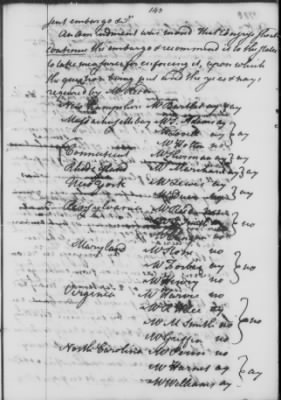 143
sent embargo &c
An amendment was moved that Congress
continue the embargo & recommend it to the states
to take measures for enforcing it, upon which
the question being put and the yeas & nays
required by Mr
New Hampshire Mr Bartlett ay } ay
Massachusetts bay Mr S. Adams ay
Mr Lovell ay } ay
Mr Holten no
Connecticut Mr Sherman ay } ay
Rhode Island Mr Marchant ay } ay
New York Mr Lewis ay } ay
Mr Duer
Pennsylvania Mr
Mr Smith
Mr no
Maryland Mr no
Mr Forbes ay } no
Mr Henry no
Virginia Mr Harvie no
Mr R H Lee ay
Mr M Smith no } no
Mr Griffin no
North Carolina Mr Penn no
Mr Harnet ay } ay
Mr Williams ay